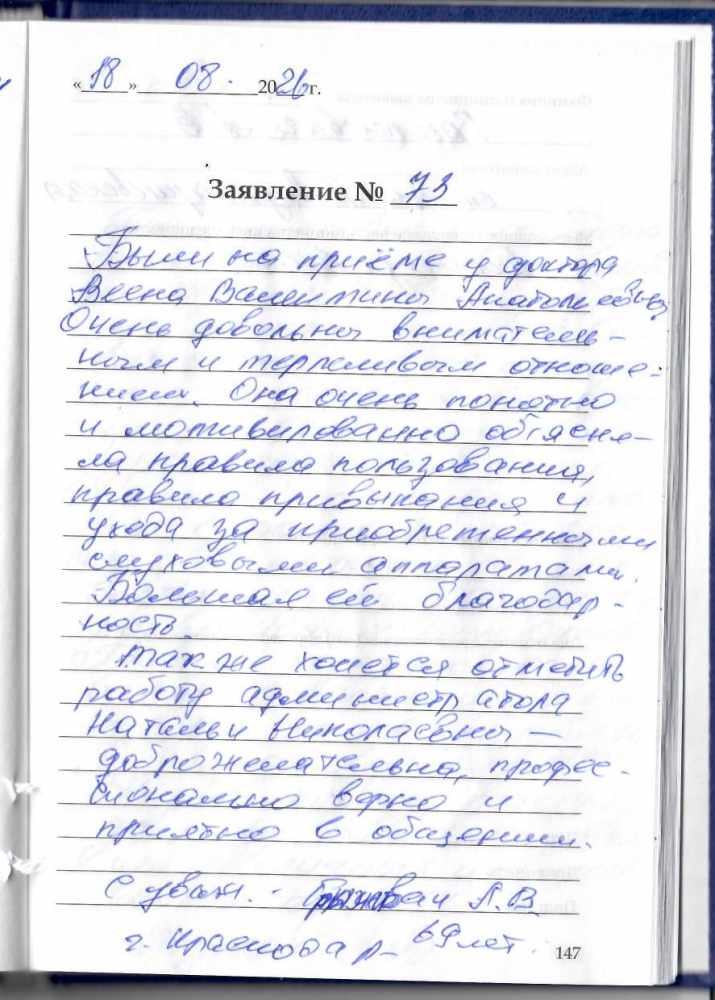 «18» 08. 2026 г.
Заявление № 73
Были на приёме у доктора
Валентины Анатольевны
Очень довольны вниматель-
ным и терпеливым отноше-
нием. Она очень понятно
и мотивированно объясня-
ла правила пользования,
правила привыкания и
ухода за приобретенными
слуховыми аппаратами.
Большая ей благодар-
ность
Также хочется отметить
работу администратора
Натальи Николаевны —
доброжелательна, профес-
сионально верно и
приятно в общении.
С уваж. - А.В.
г. Краснодар - 69 лет.
147